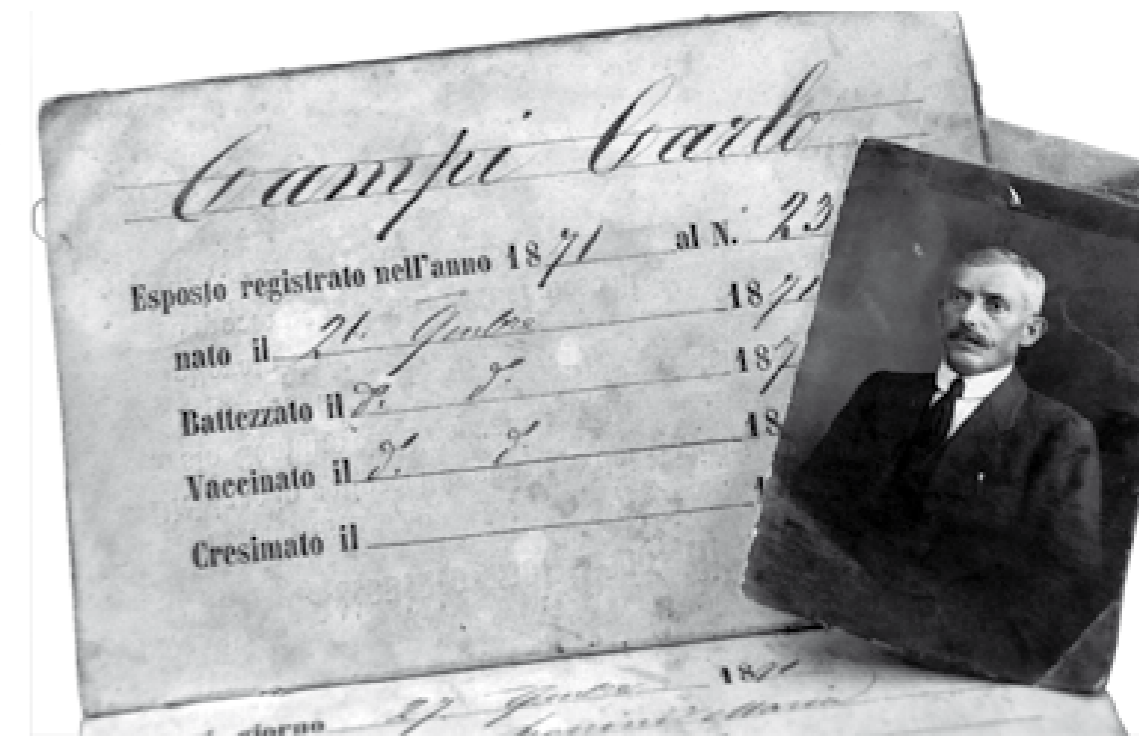 Campi Carlo
Esposto registrato nell'anno 1871 al N. 23
nato il 21. 9mbre 1871
Battezzato il d. d. 187
Vaccinato il d. d. 18
Cresimato il
giorno 27. 9mbre 187